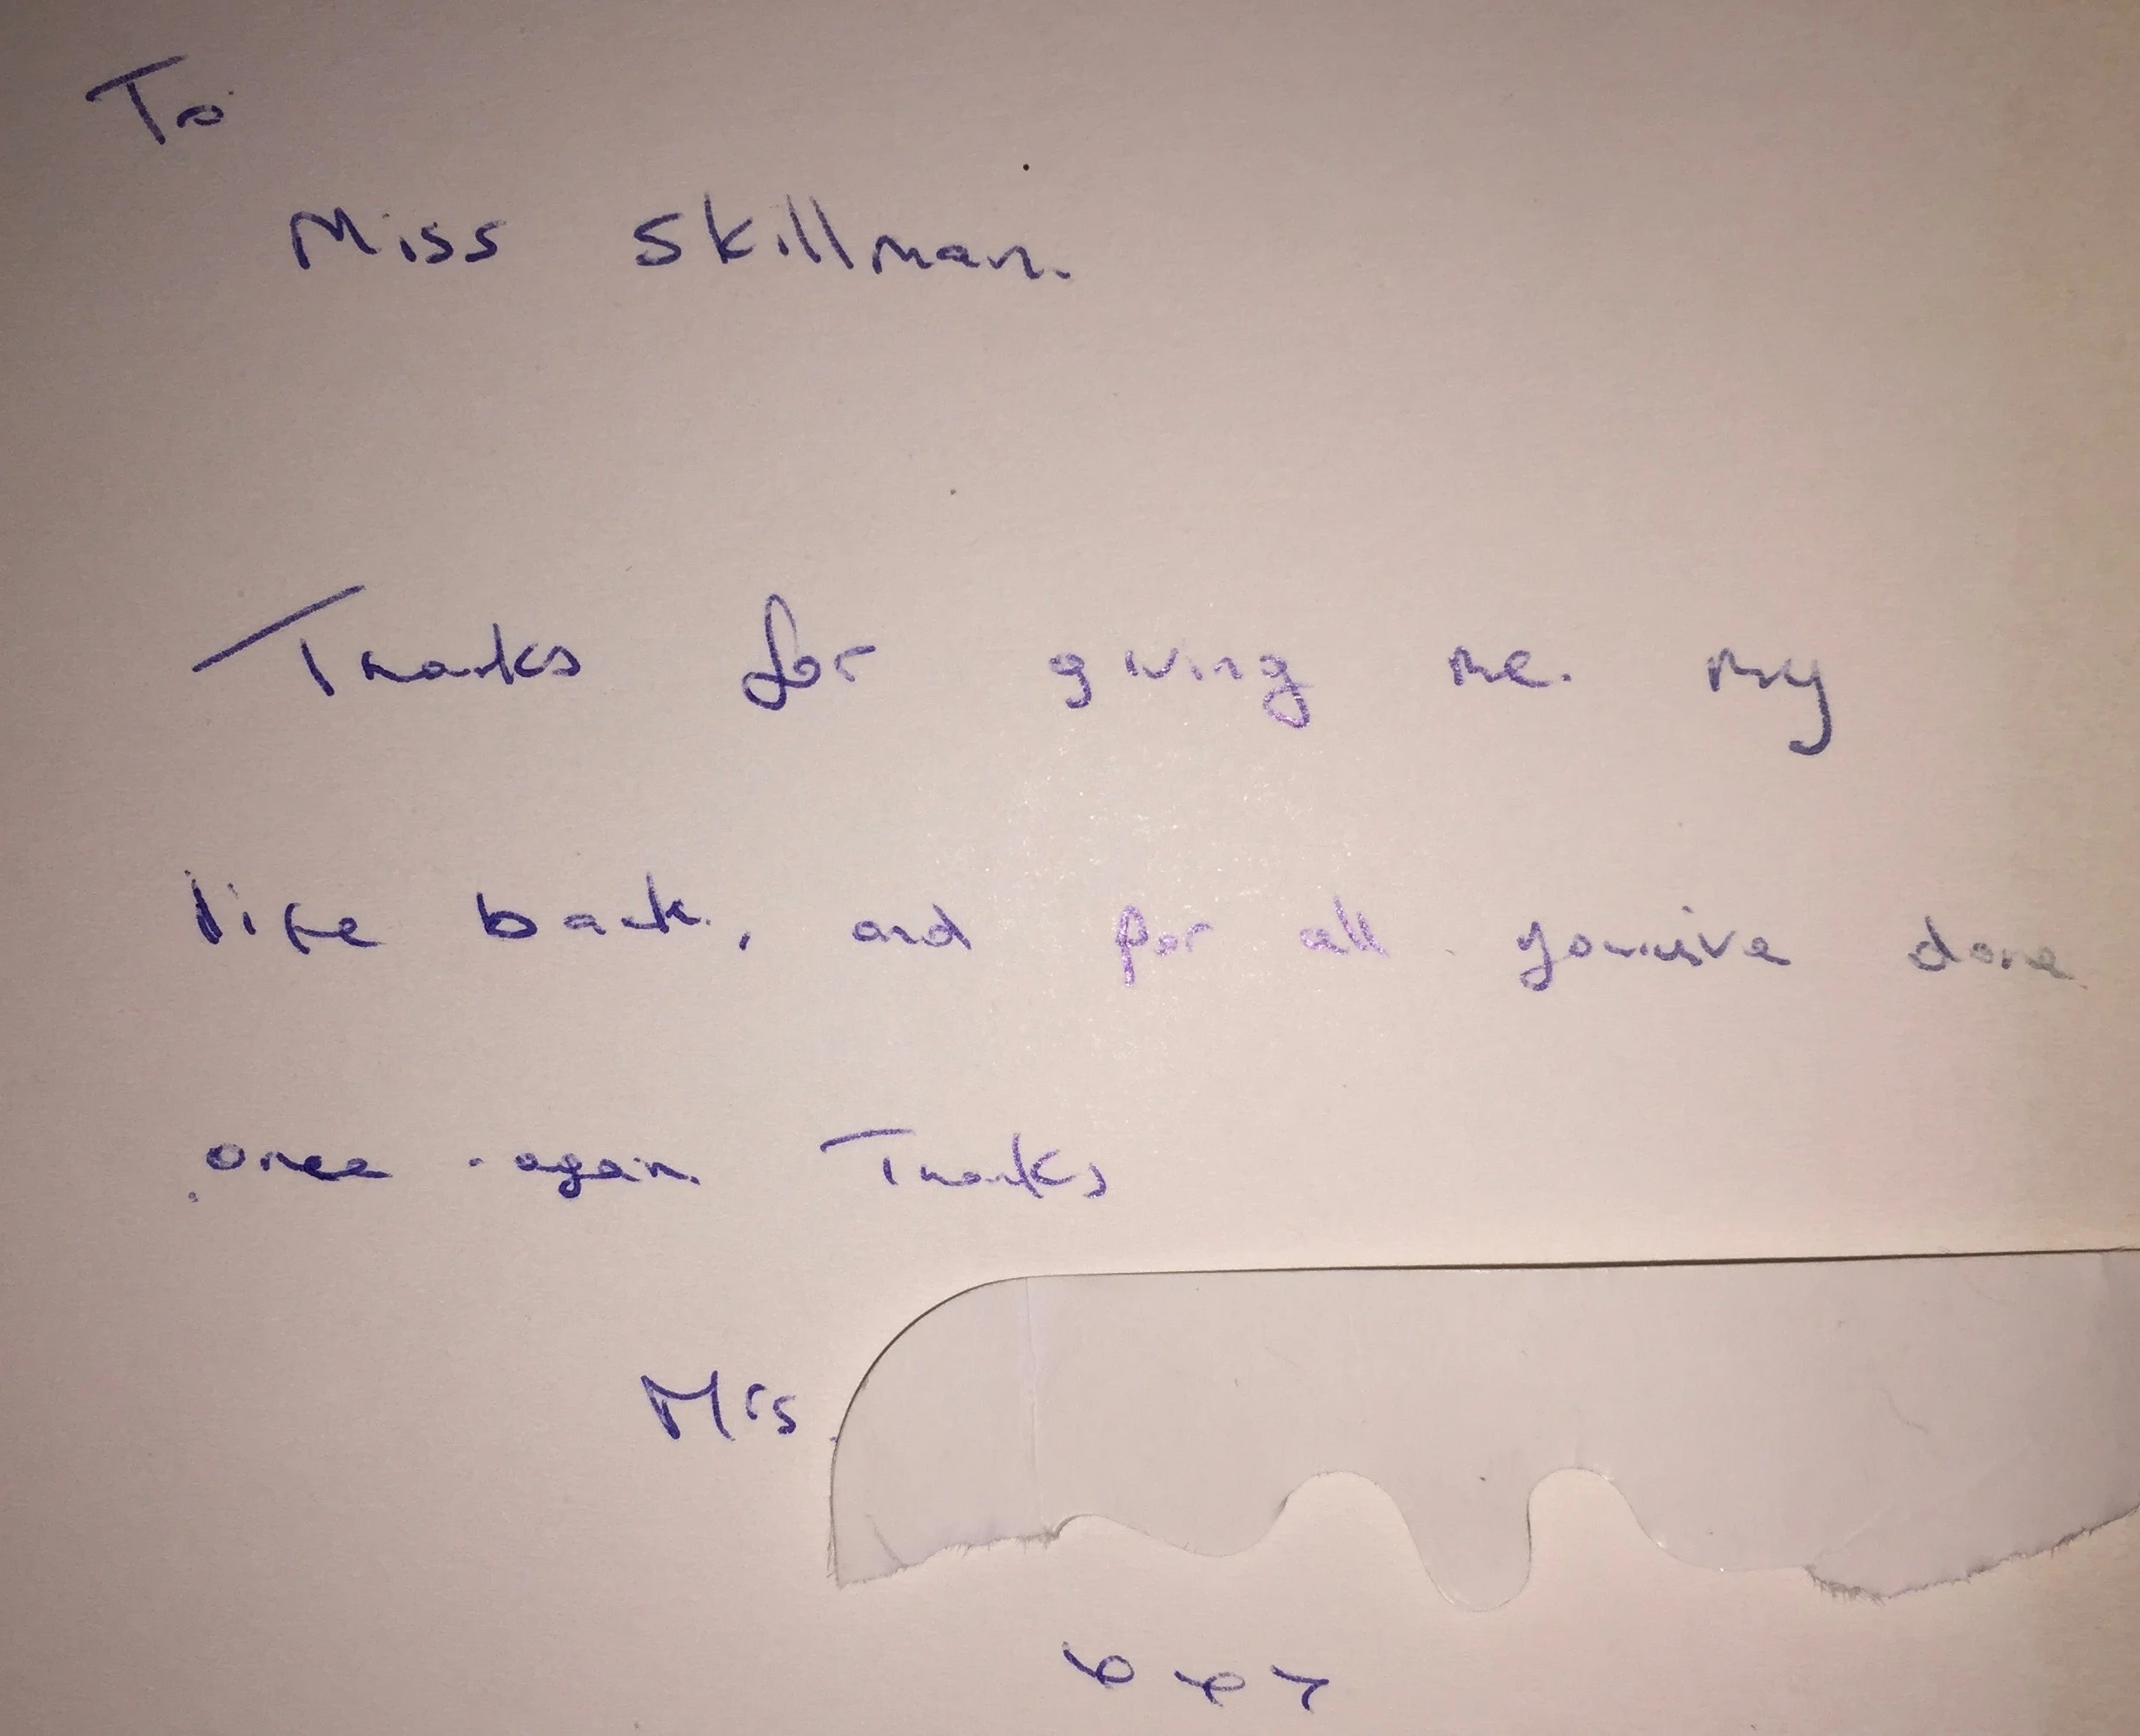 To
Miss Skillman.
Thanks for giving me. my
life back, and for all you've done
once again Thanks
Mrs.
xxx